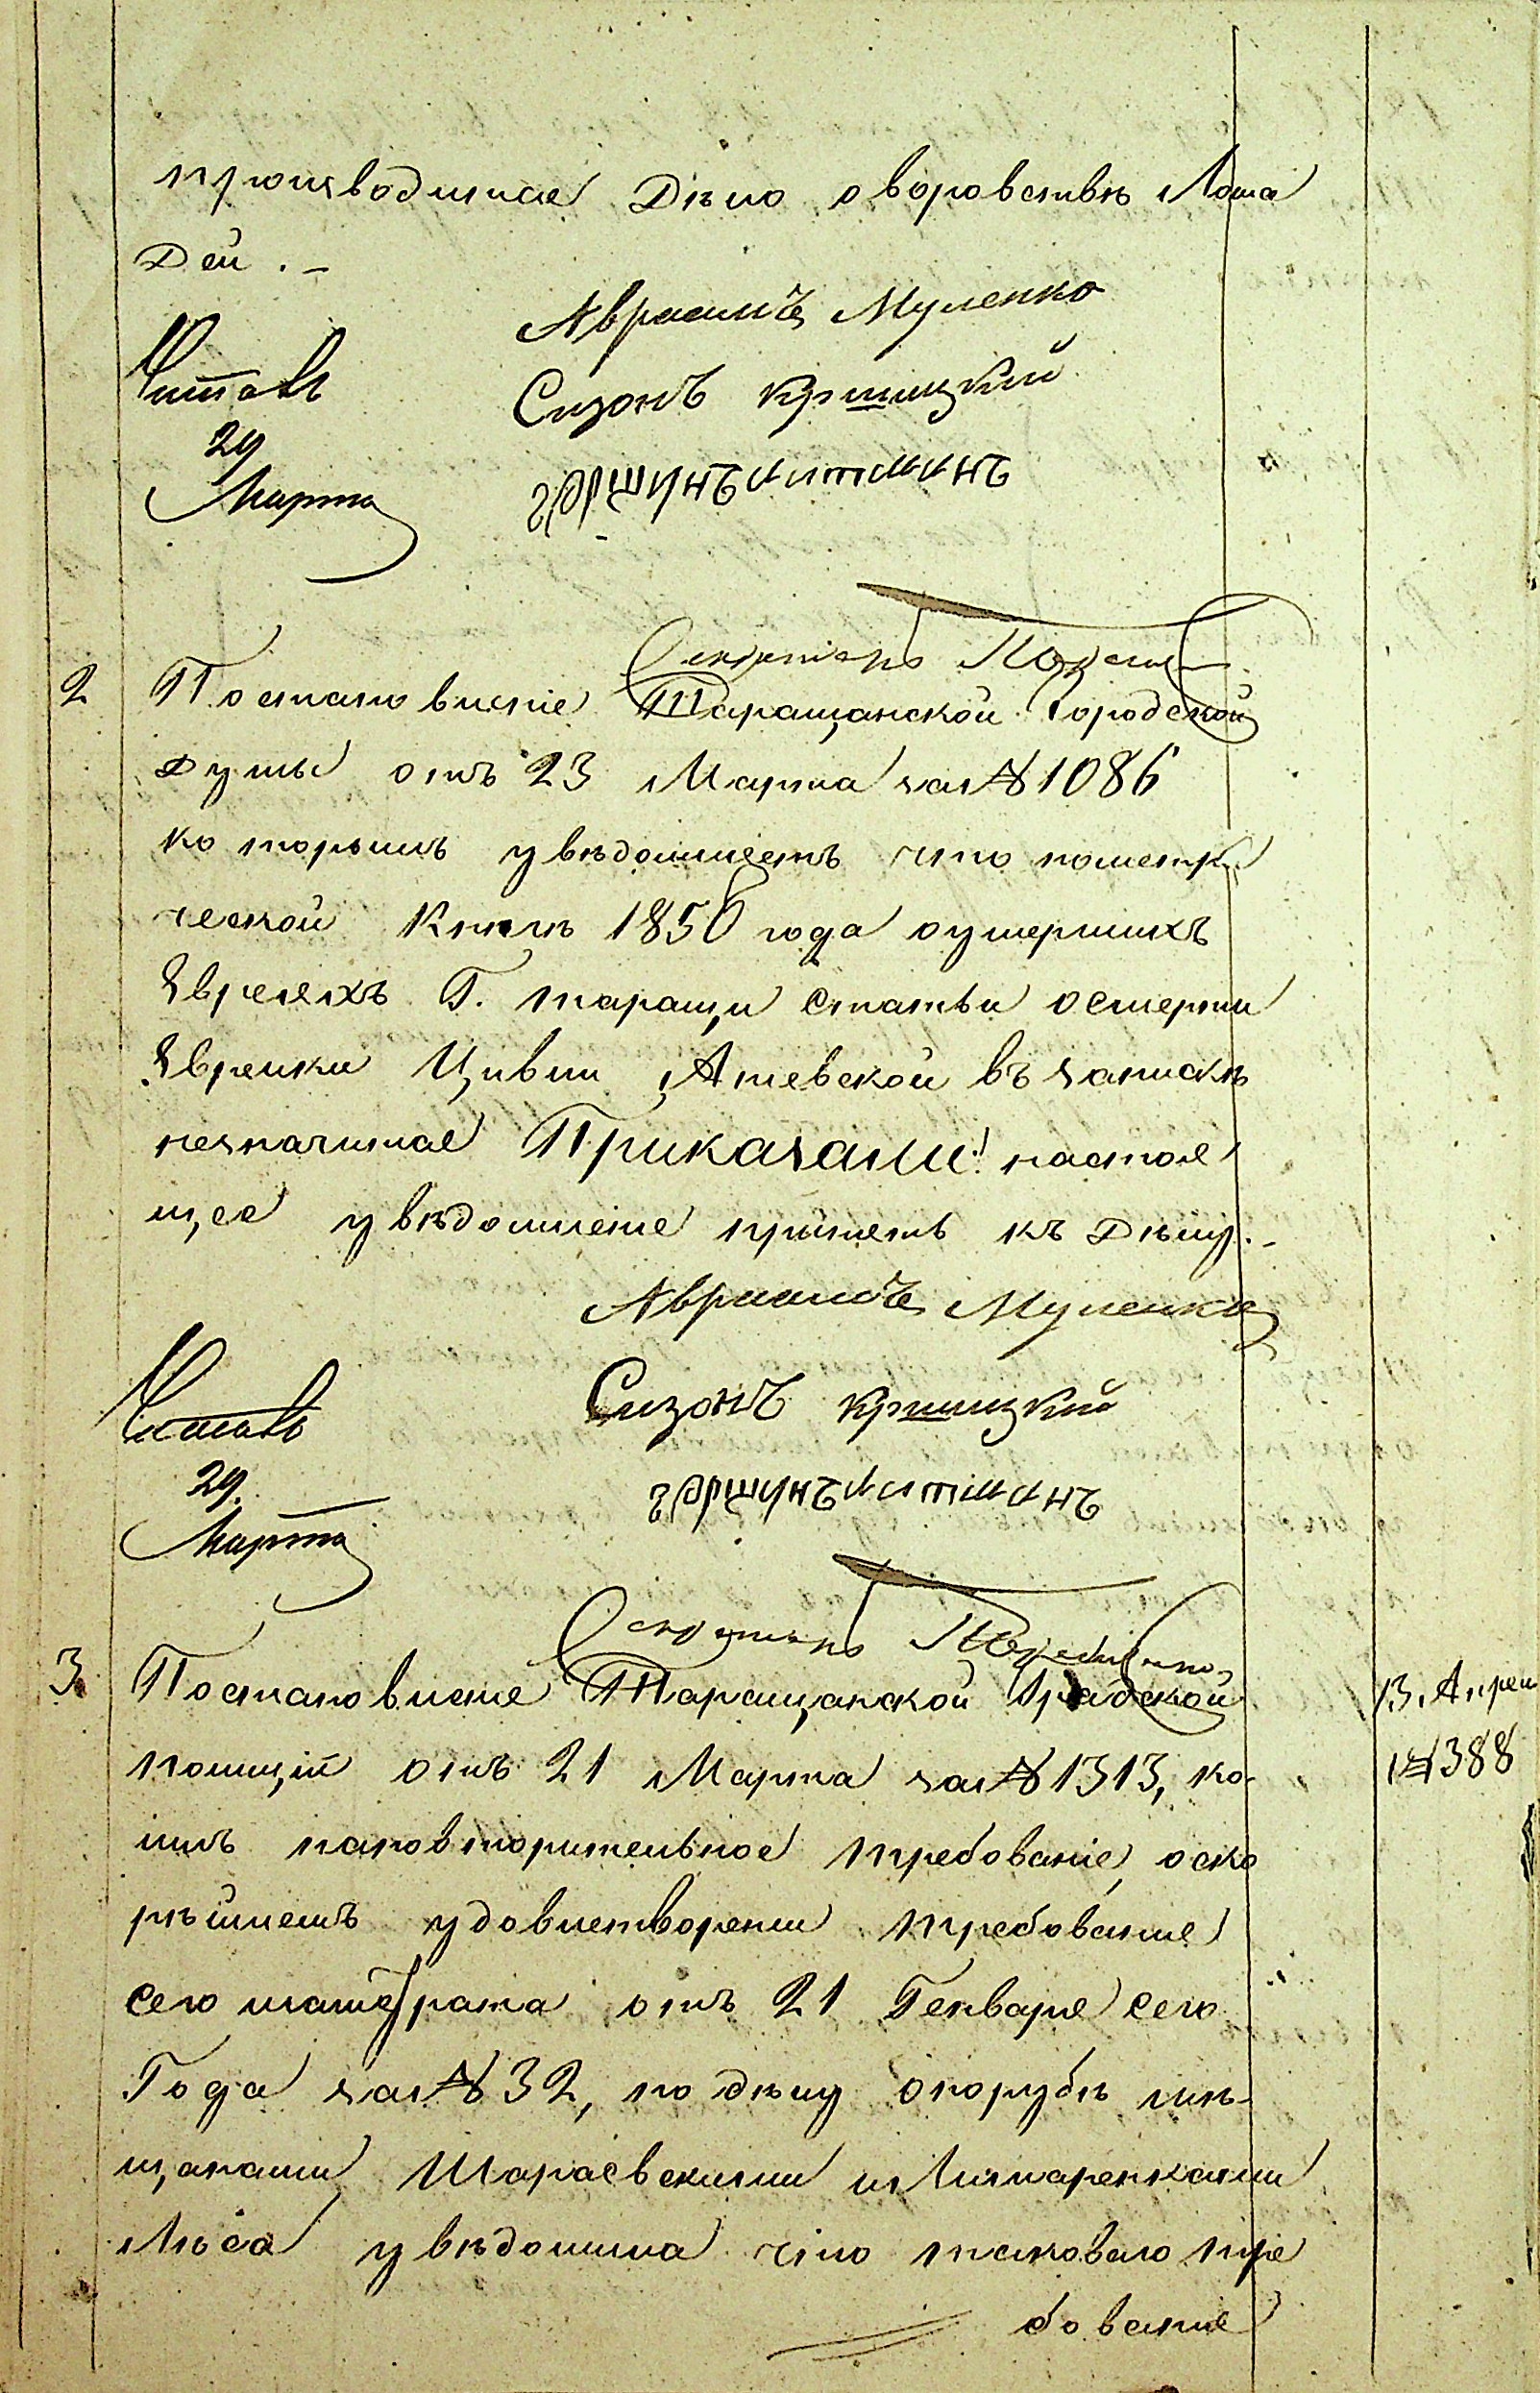 производимое Дѣло о воровствѣ Лоша
Дей . –
Авраамъ Муленко
Читалъ
Сизонъ
29
Марта
Секретарь
2 Постановленіе Таращанской Городской
Думы отъ 23 Марта за № 1086
которымъ увѣдомляетъ что пометри
ческой Книгѣ 1850 года оумершихъ
Евреяхъ Г. таращи статьи осмерти
Еврейки Цивии въ запискѣ
незначится Приказали: настоя
щее увѣдомленіе пріобщить къ Дѣлу. –
Авраамъ Муленко
Читалъ
Сизонъ
29
Марта
Секретарь
3 Постановленіе Таращанской Градской
полиціи отъ 21 Марта за № 1313, ко-
имъ наповторительное требованіе оско
рѣйшемъ удовлетвореніи требованіе
сего магистрата отъ 21 Генваря сего
Года за № 32, по дѣлу опорубѣ мѣ-
щанами Шараевскими
Лѣса увѣдомила что таковаго тре
бованіе
13 Апрел
№ 388